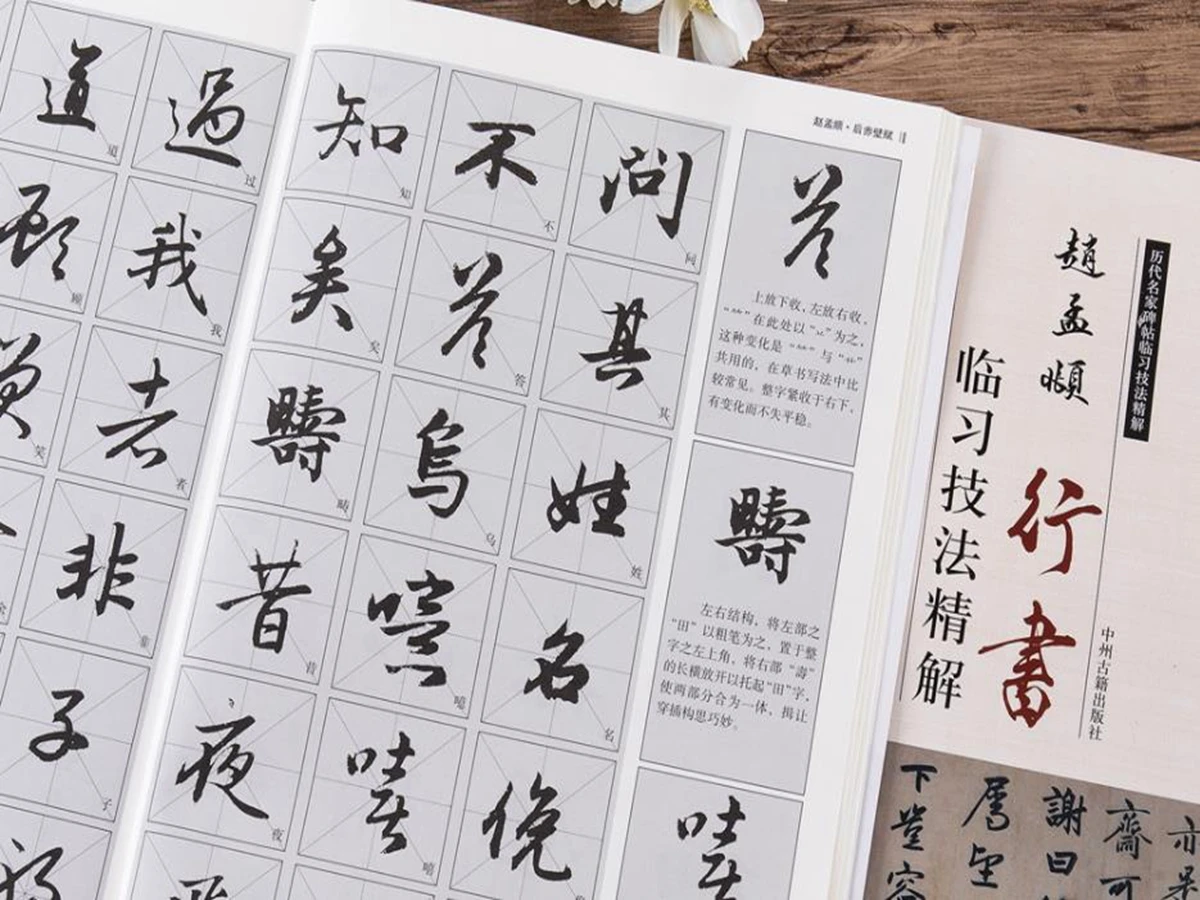 赵孟頫·后赤壁赋
答
上放下收，左放右收，
“⺮”在此处以“丷”为之，
这种变化是“⺮”与“艹”
共用的，在草书写法中比
较常见。整字紧收于右下，
有变化而不失平稳。
疇
左右结构，将左部之
“田”以粗笔为之，置于整
字之左上角，将右部“壽”
的长横放开以托起“田”字，
使两部分合为一体，揖让
穿插构思巧妙。
嘻
問 问
其 其
姓 姓
名 名
俛
不 不
答 答
烏 乌
噫 噫
嘻 嘻
知 知
矣 矣
疇 畴
昔 昔
夜 夜
過 过
我 我
者 者
非 非
子 子
道 道
顧 顾
笑 笑
余
历代名家碑帖临习技法精解
趙孟頫
行書
临习技法精解
中州古籍出版社
齋可
謝曰
下豈容